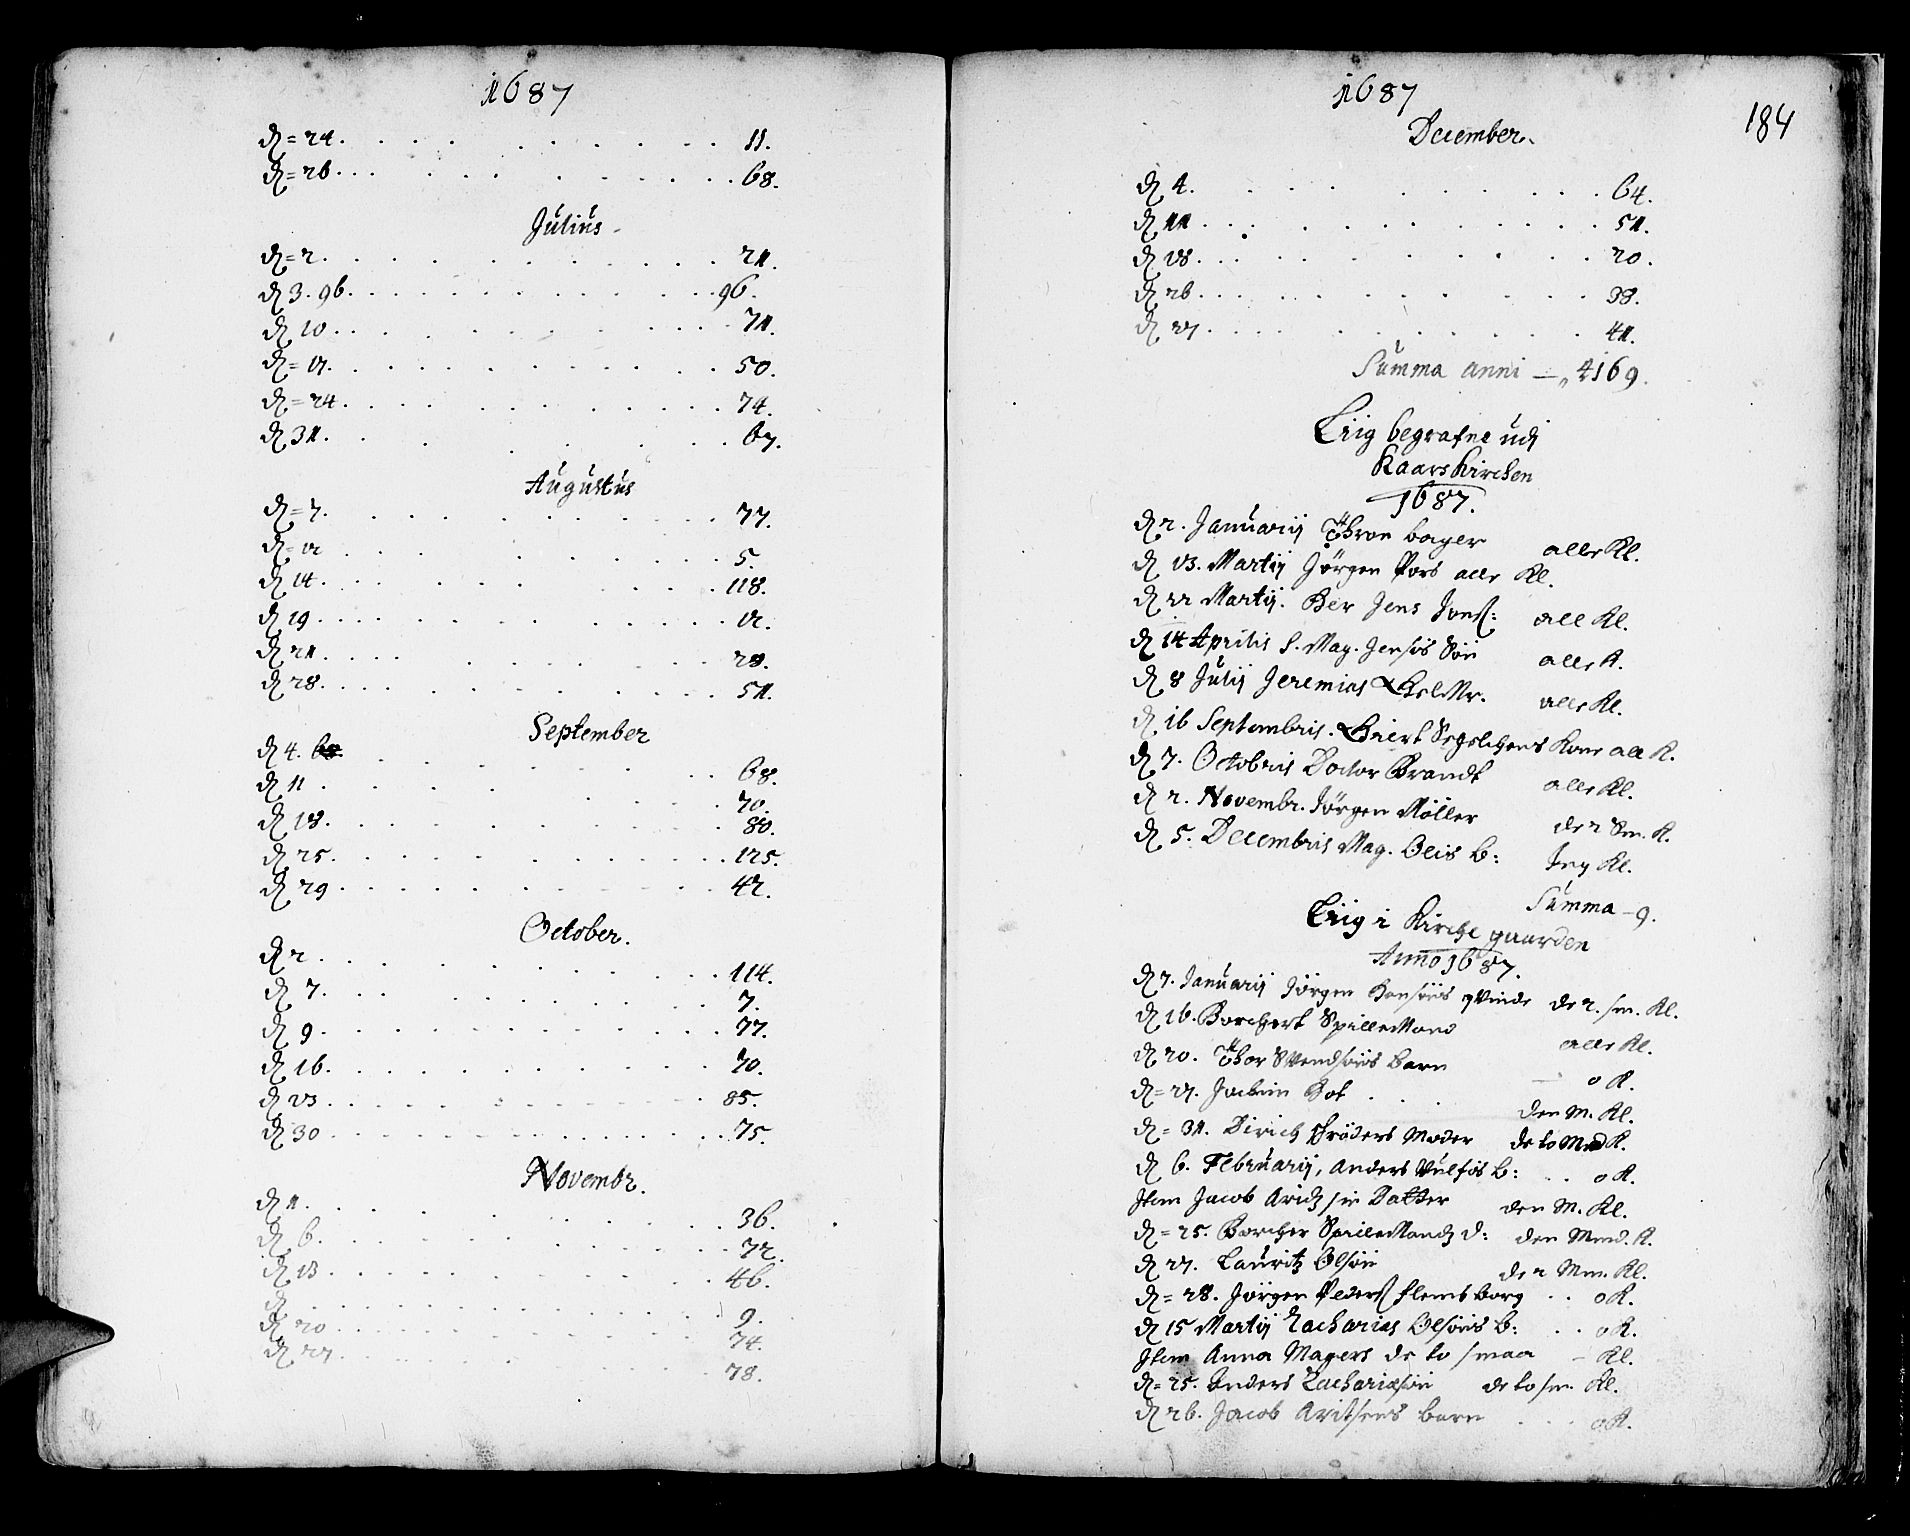 1687
d = 24 . . . . . . . . . . . 11.
d = 26 . . . . . . . . . . . 68.
Julius
d = 2 . . . . . . . . . . . 21.
d 3. 96 . . . . . . . . . . . 96.
d 10 . . . . . . . . . . . 71.
d = 17 . . . . . . . . . . . 50.
d = 24 . . . . . . . . . . . 74.
d 31 . . . . . . . . . . . 67.
Augustus
d = 7. . . . . . . . . . . . 77.
d = 12 . . . . . . . . . . . 5.
d 14 . . . . . . . . . . . 118.
d 19 . . . . . . . . . . . 12.
d 21 . . . . . . . . . . .
d 28 . . . . . . . . . . . 51.
September
d 4. . . . . . . . . . . . 68.
d 11 . . . . . . . . . . . 70.
d 18. . . . . . . . . . . . 80.
d 25. . . . . . . . . . . . 125.
d 29 . . . . . . . . . . . 42.
October.
d 2 . . . . . . . . . . . 114.
d 7. . . . . . . . . . . . 7.
d 9 . . . . . . . . . . . 77.
d 16. . . . . . . . . . . . 70.
d 23 . . . . . . . . . . . 85.
d 30 . . . . . . . . . . . 75.
Novembr.
d 1. . . . . . . . . . . . 36.
d 6. . . . . . . . . . . . 72.
d 13 . . . . . . . . . . . 46.
d . . . . . . . . . . . 9.
d 20 . . . . . . . . . . . 74.
d 27 . . . . . . . . . . . 78.
1687
184
December.
d 4. . . . . . . . . . . . 64.
d 11 . . . . . . . . . . . 51.
d 18 . . . . . . . . . . . 20.
d 26 . . . . . . . . . . . 38.
d 27 . . . . . . . . . . . 41.
Summa anni — „ 4169.
Liig begrafne udj
Kaarskirchen
1687.
d 2. Januarij Thron bager alle Kl.
d 13. Martij Jørgen Pors alle Kl.
d 22 Martij. Her Jens Jons: all Kl.
d 14 Aprilis S. Mag. Jensøs Søn alle K.
d 8 Julij Jeremias alle Kl.
d 16 Septembris. Giert Segelchens Kone all K.
d 7. Octobris Doctor Brandt alle Kl.
d 2. Novembr. Jørgen Møller de 2 Sm. K.
d 5. Decembris Mag. Olis b: Ing Kl.
Summa – 9.
Liig i Kirche gaarden
Anno 1687.
d 7. Januarij Jørgen Hansøns qvinde de 2. sm. Kl.
d 16. Borchert Spillemand alle Kl.
d 20. Thor Svendsøns barn — o K.
d = 27. Jochim Hot . . . den M. Kl.
d = 31. Dirich Moder de to Mind K.
d 6. Februarij, Anders Vulfs b: . . o K.
Item Jacob Arid sin Datter den M. Kl.
d = 25. Borcher Spillemands d: den Mind. K.
d 27. Lauritz Olsøn de 2 Mm. Kl.
d = 28. Jørgen Peders Flensborg . . o K.
d 15 Martij Zacharias Olsøns b: . . o K.
Item Anna Magers de to smaa – Kl.
d = 25. Anders Zachariæsøn de to sm. Kl.
d 26. Jacob Aritsens barn . . o K.